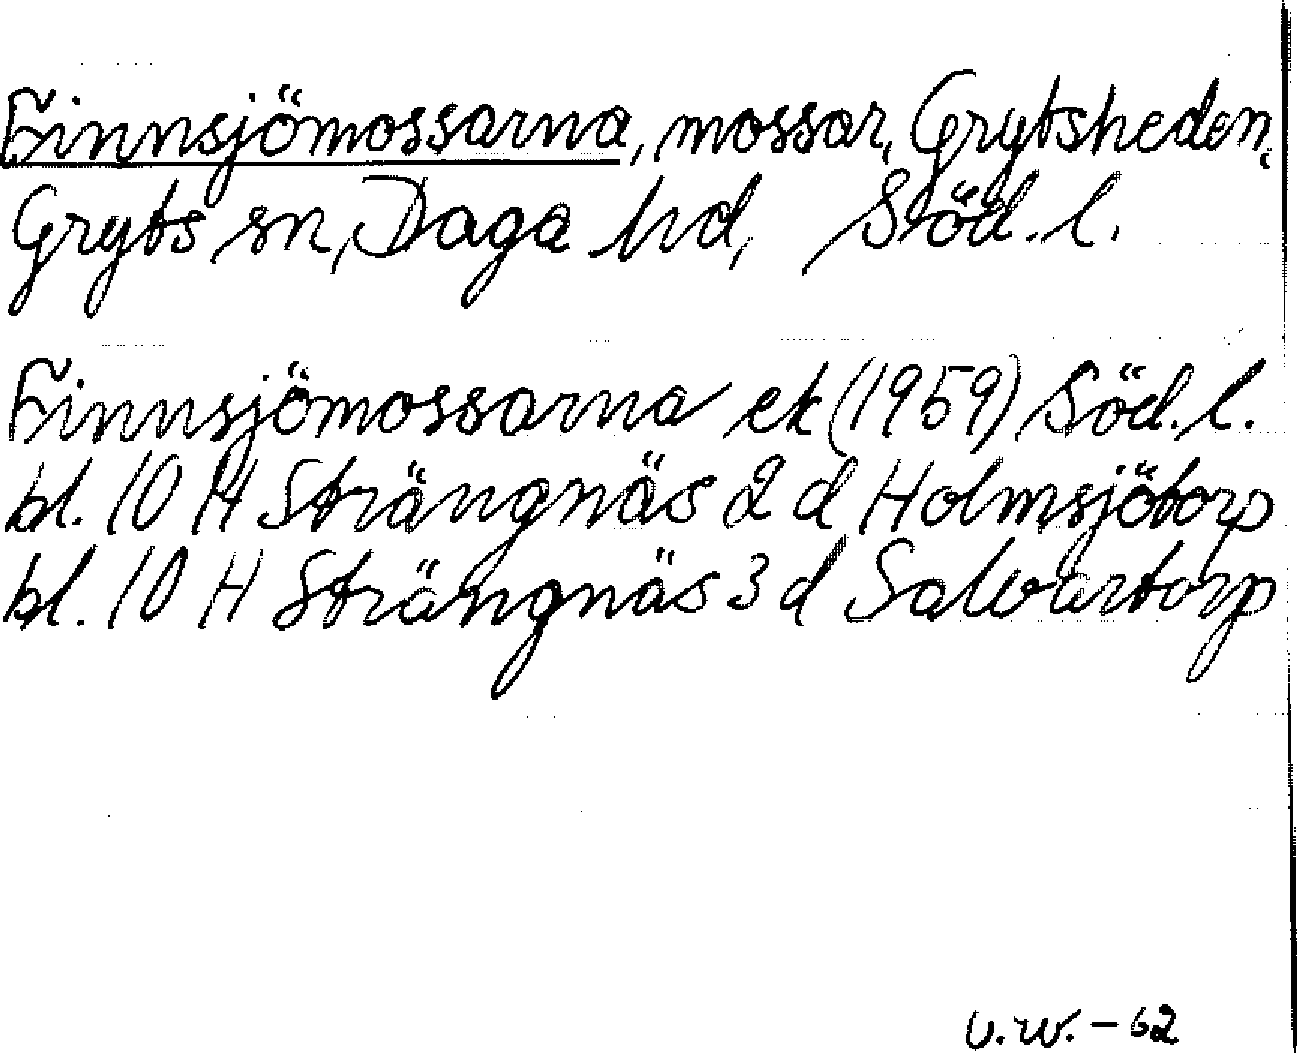 Finnsjömossarna, mossar, Grytsheden,
Gryts sn, Daga hd, Söd. l.
Finnsjömossarna ek (1959) Söd. l.
bl. 10 H Strängnäs 2 d Holmsjötorp
bl. 10 H Strängnäs 3 d Salvartorp
U.W. - 62